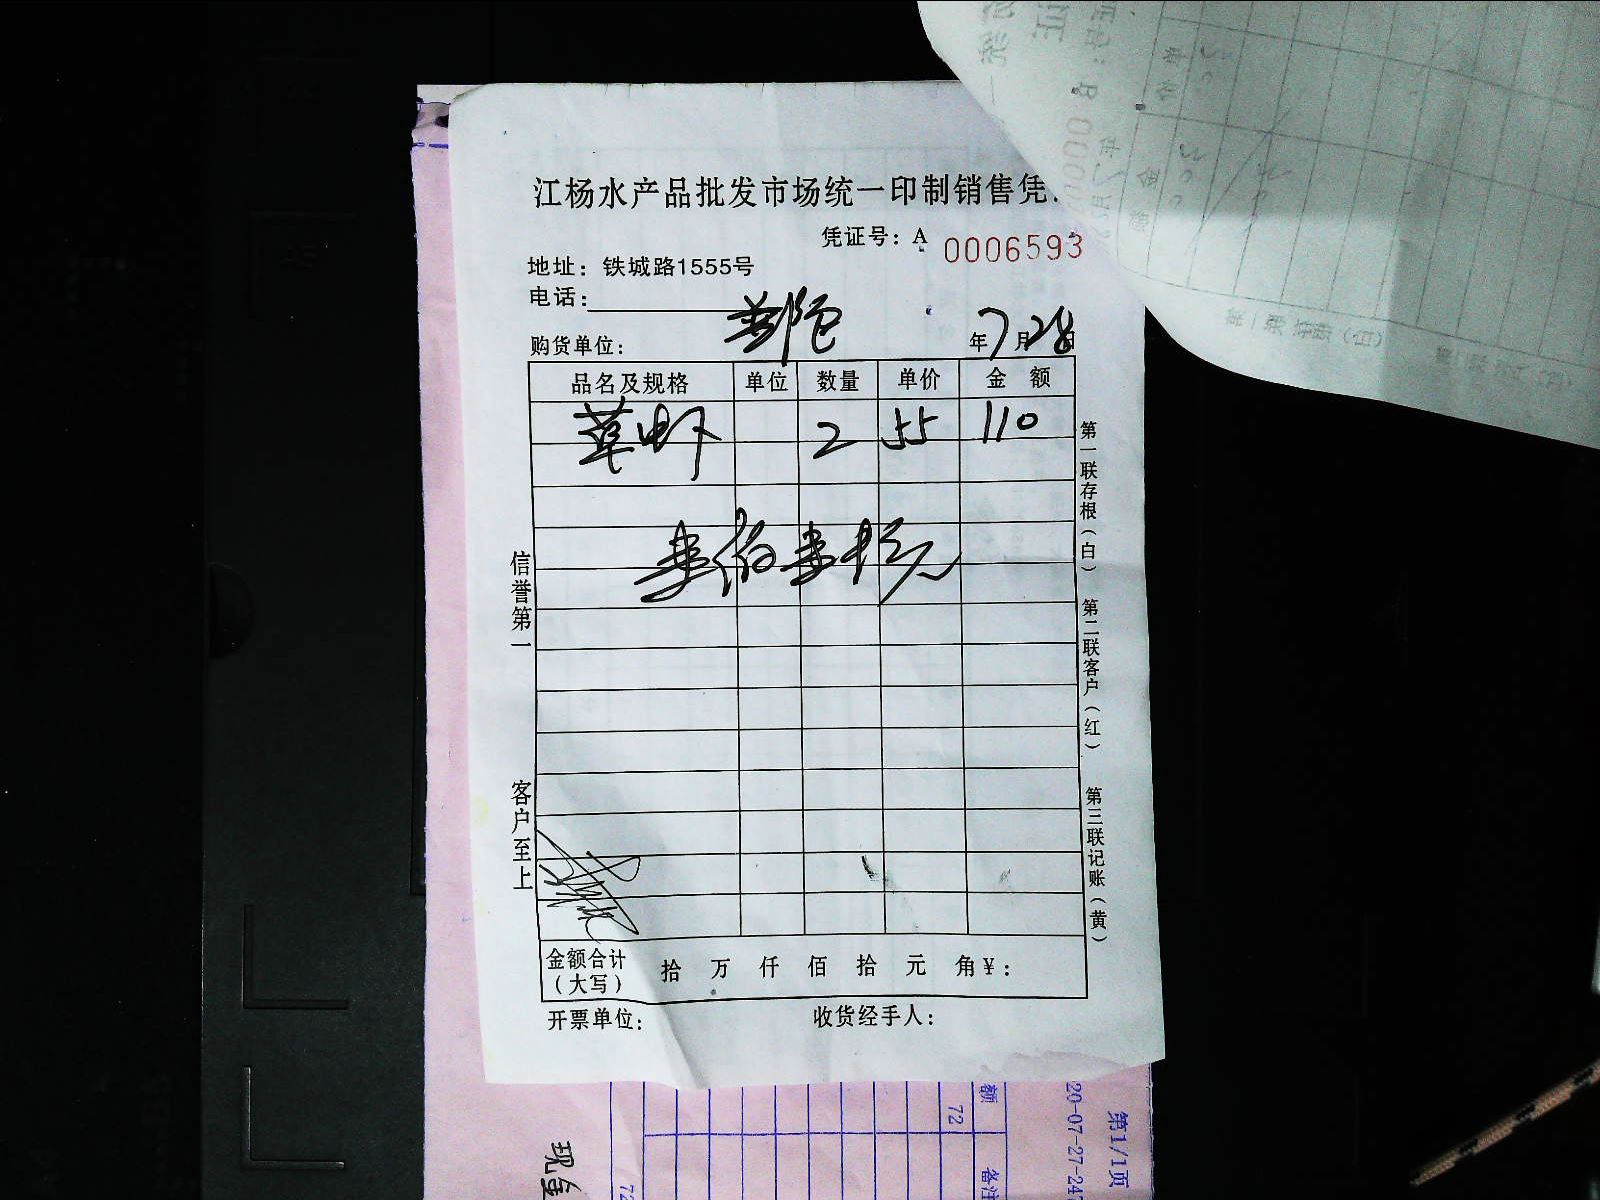 江杨水产品批发市场统一印制销售凭
凭证号：A 0006593
地址：铁城路1555号
电话：
购货单位： 年7月28日
品名及规格 单位 数量 单价 金额
草虾 2 55 110
信誉第一
客户至上
第一联存根（白） 第二联客户（红） 第三联记账（黄）
金额合计（大写） 拾 万 仟 佰 拾 元 角 ¥：
开票单位： 收货经手人：
额
72
备注
20-07-27-24
第1/1页
现金
72